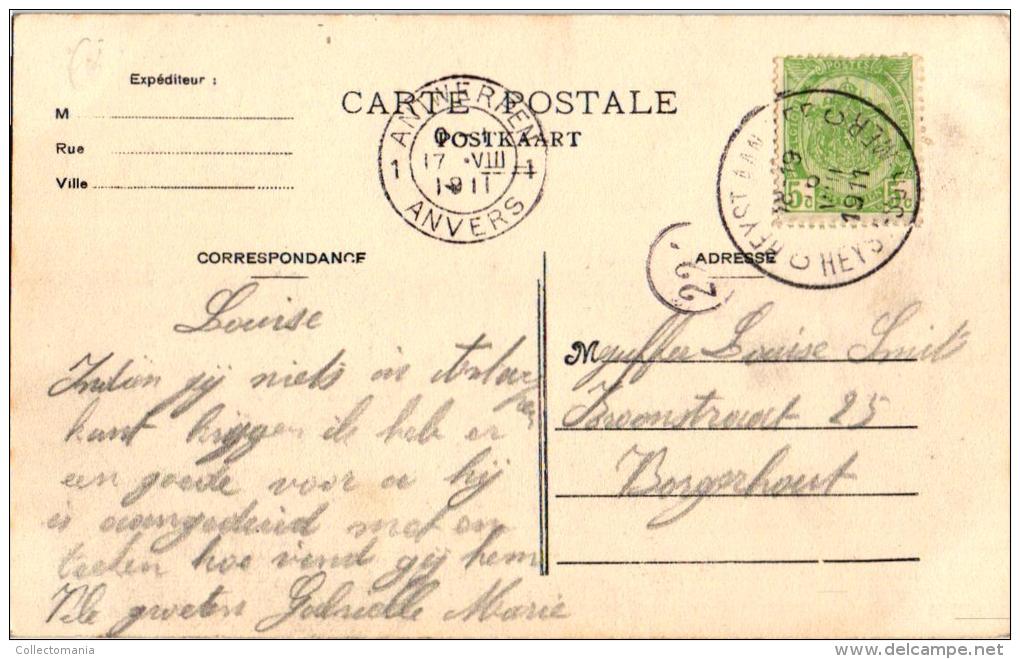 Expéditeur :
M
Rue
Ville
CARTE POSTALE
POSTKAART
1 ANTWERPEN 1
17 VIII
1911
ANVERS
POSTES
5c 5c
HEYST AAN ZEE
HEYST SUR MER
1911
22
CORRESPONDANCE
ADRESSE
Louise
Indien gij niets in Antwerpen
kunt krijgen ik heb er
een goede voor u hij
is aangeduid met een
teeken hoe vind gij hem
Vele groeten Gabrielle Marie
Mejuffer Louise Smits
Kroonstraat 25
Borgerhout
Collectomania
www.delcampe.net